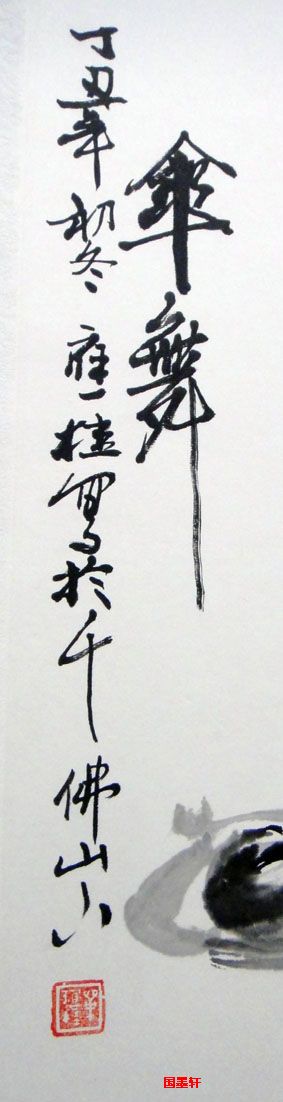 傘舞
丁丑年初冬應桂寫於千佛山下
国墨轩